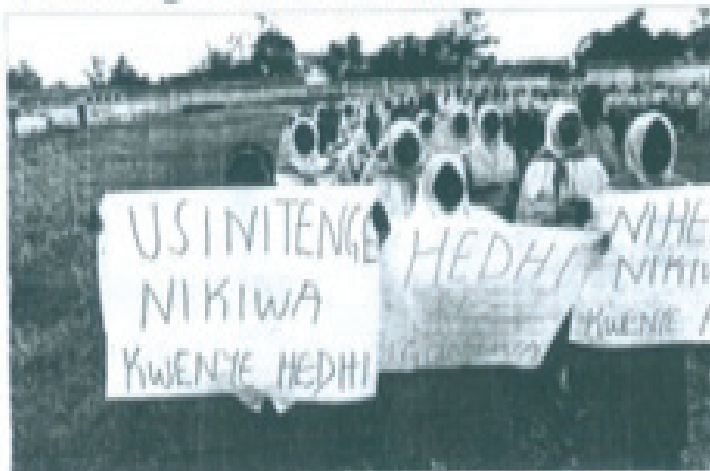 USINITENGE
NIKIWA
KWENYE HEDHI
HEDHI
NIHE
NIKIW
KWENYE